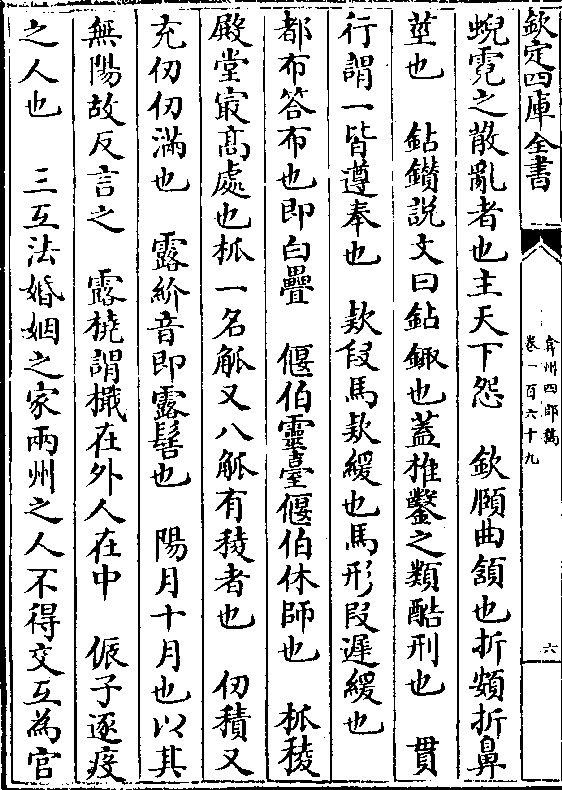 欽定四庫全書
弇州四部稿
卷一百六十九
六
蜺霓之散亂者也主天下怨　欽頤曲頷也折頞折鼻
莖也　鈷鑽說文曰鈷䥕也蓋椎鑿之類酷刑也　貫
行謂一皆遵奉也　欵段馬欵緩也馬形段遲緩也
都布答布也即白疊　偃伯靈臺偃伯休師也　柧稜
殿堂㝡髙處也柧一名觚又八觚有稜者也　仞積又
充仞仞滿也　露紒音即露髻也　陽月十月也以其
無陽故反言之　露橈謂檝在外人在中　侲子逐疫
之人也　三互法婚姻之家兩州之人不得交互為官